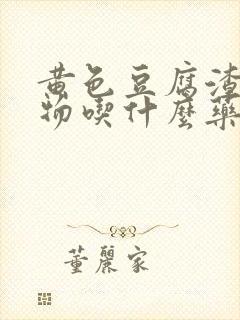 黄色豆腐渣
物喫什麼藥
董麗家